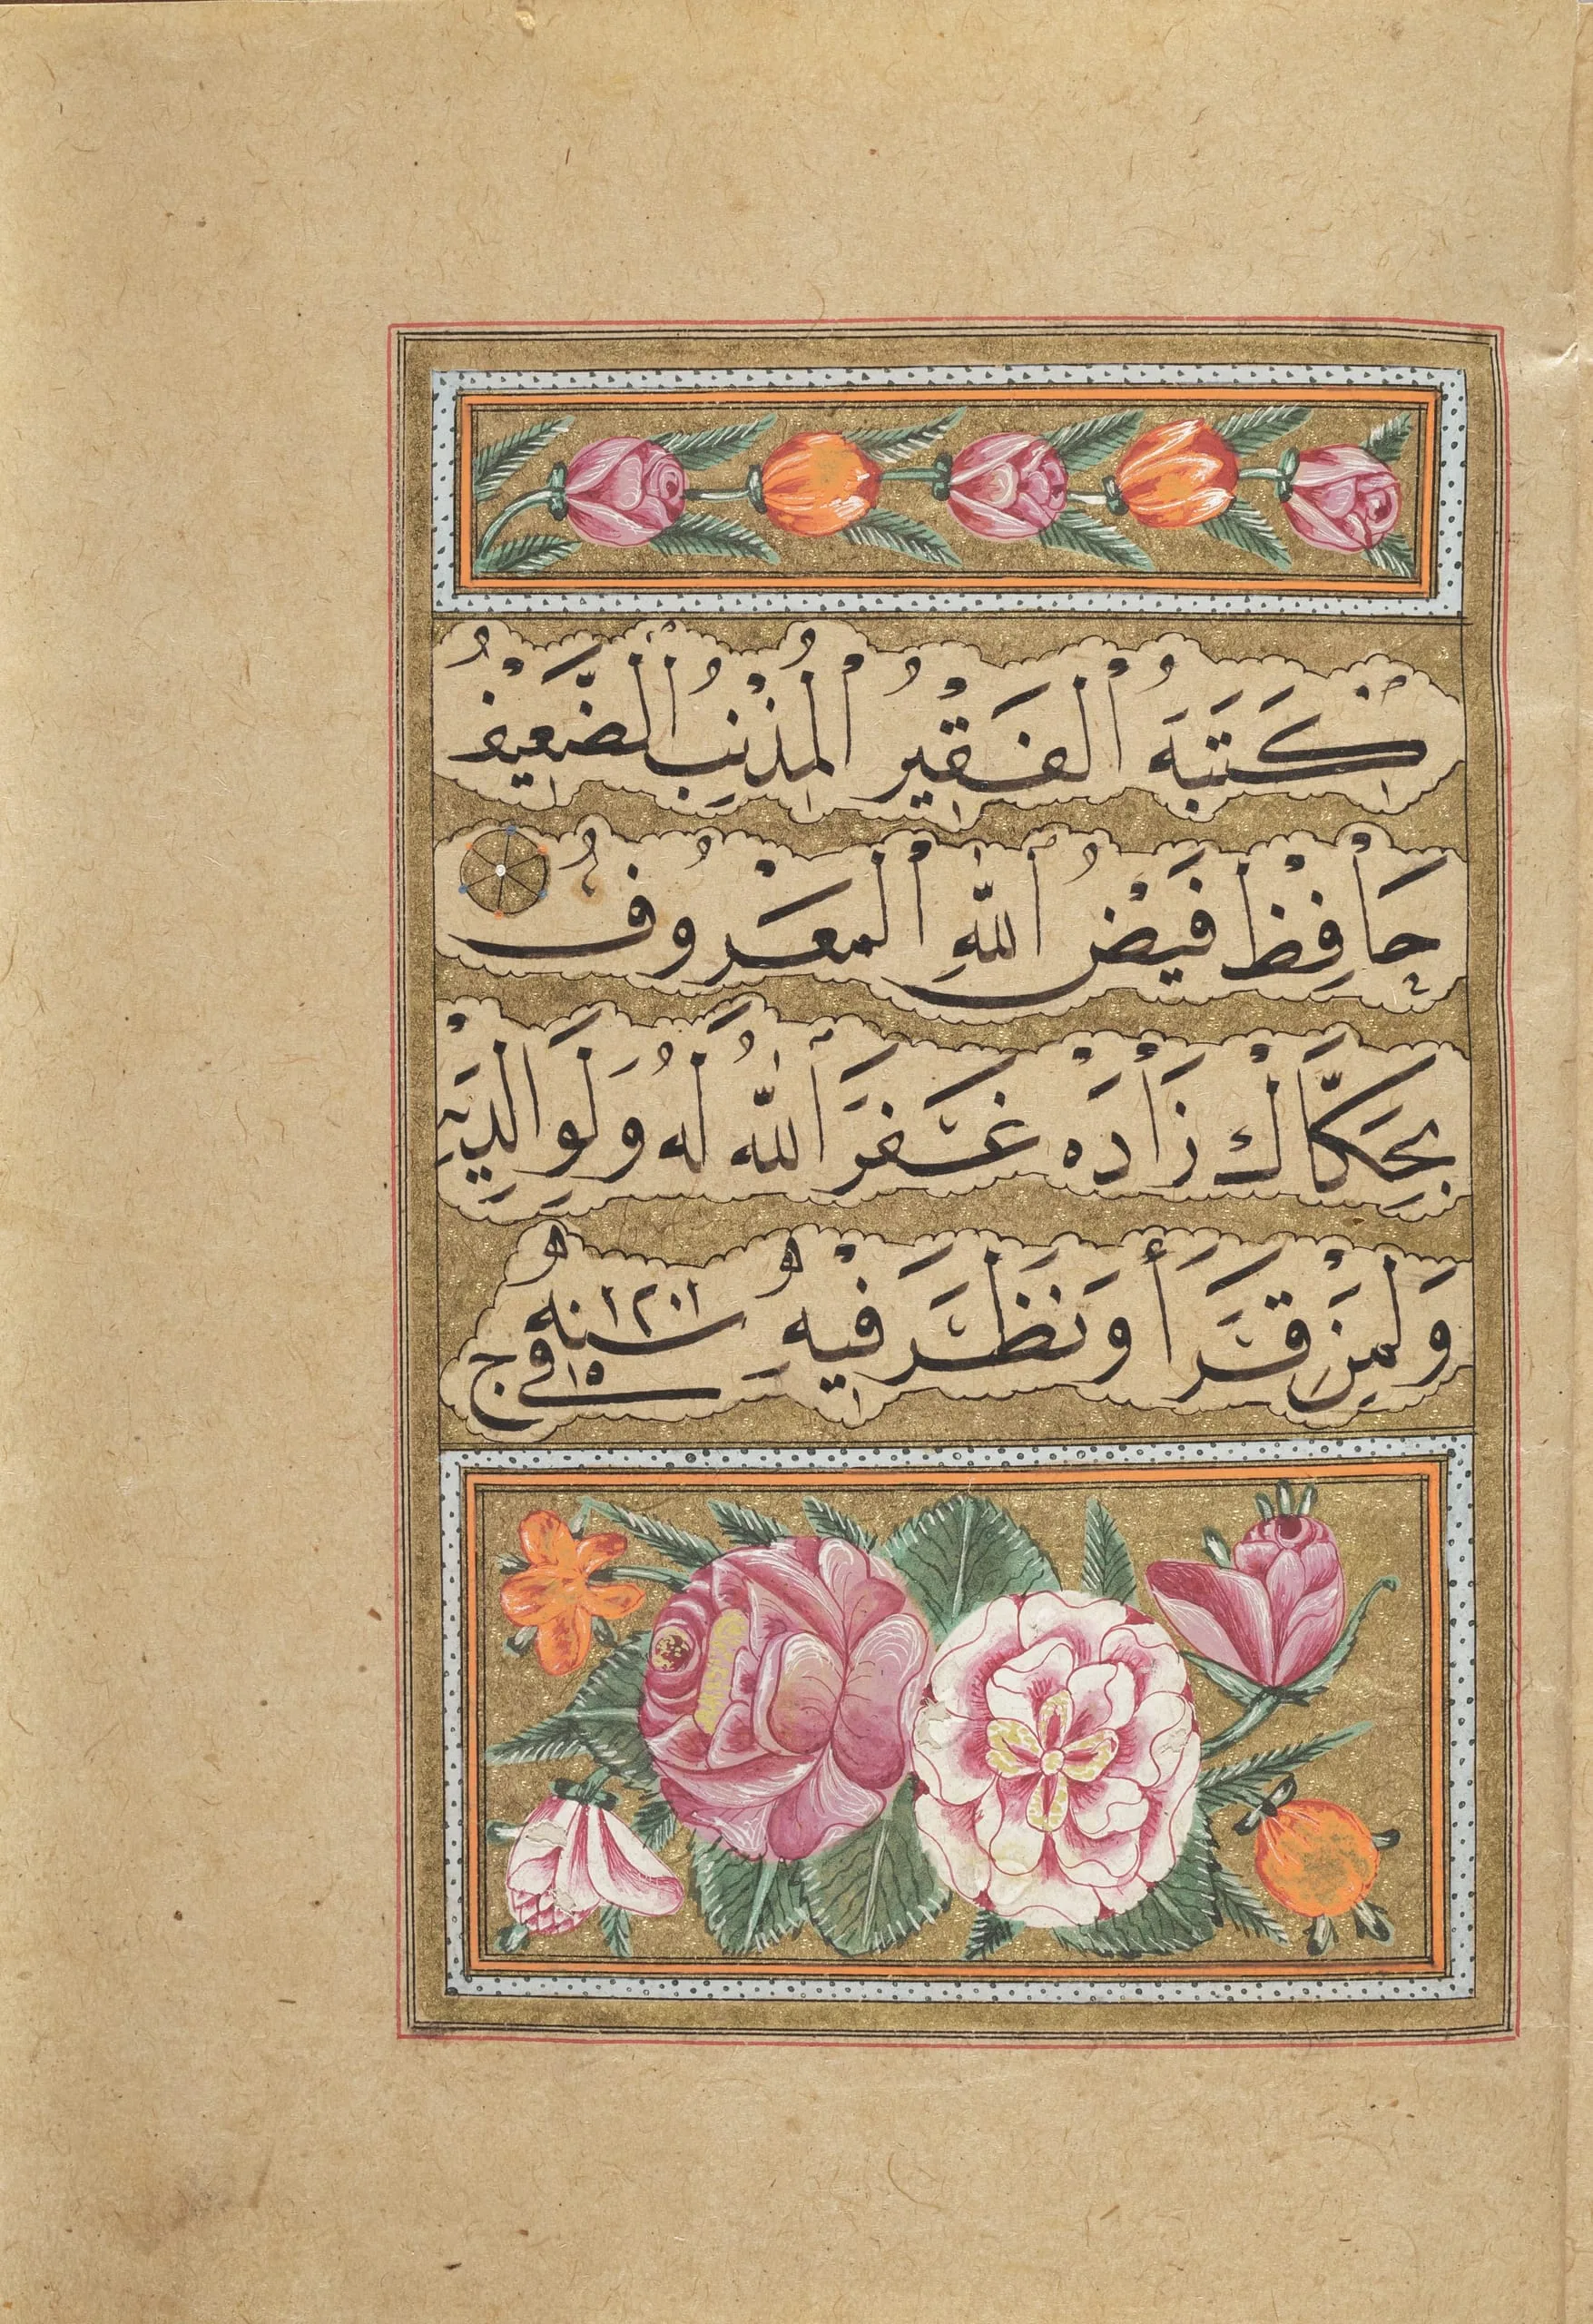 كَتَبَهُ الْفَقِيْرُ الْمُذْنِبُ الضَّعِيْفُ
حَافِظْ فَيْضُ اللّٰهِ الْمَعْرُوفُ
بِحَكَّاكْ زَادَهْ غَفَرَ اللّٰهُ لَهُ وَلِوَالِدَيْهِ
وَلِمَنْ قَرَأَ وَنَظَرَ فِيْهِ سنه ١٢٠١ فى ١٥ ج